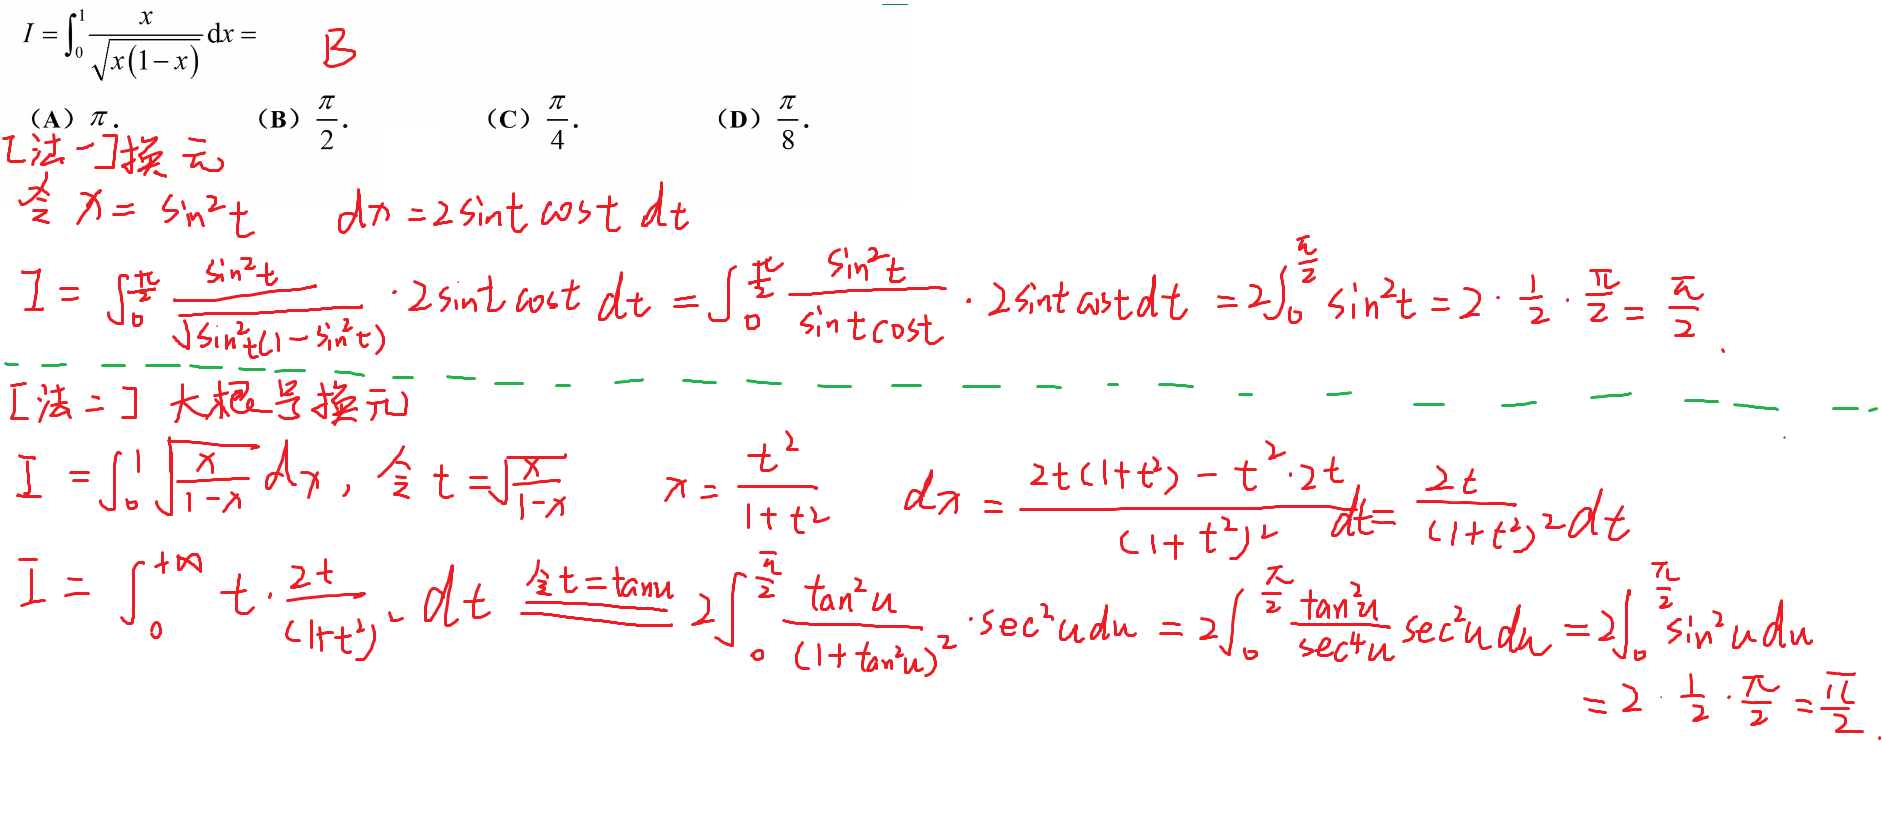 I = ∫₀¹ x/√(x(1−x)) dx = B
（A）π. （B）π/2. （C）π/4. （D）π/8.
[法一]换元
令 x = sin²t dx = 2sint cost dt
I = ∫₀^(π/2) sin²t/√(sin²t(1−sin²t)) · 2sint cost dt = ∫₀^(π/2) sin²t/(sint cost) · 2sint cost dt = 2∫₀^(π/2) sin²t = 2 · 1/2 · π/2 = π/2.
[法二] 大根号换元
I = ∫₀¹ √(x/(1−x)) dx, 令 t = √(x/(1−x)) x = t²/(1+t²) dx = (2t(1+t²) − t²·2t)/(1+t²)² dt = 2t/(1+t²)² dt
I = ∫₀^(+∞) t · 2t/(1+t²)² dt 令t=tanu 2∫₀^(π/2) tan²u/(1+tan²u)² · sec²u du = 2∫₀^(π/2) tan²u/sec⁴u sec²u du = 2∫₀^(π/2) sin²u du
= 2 · 1/2 · π/2 = π/2.